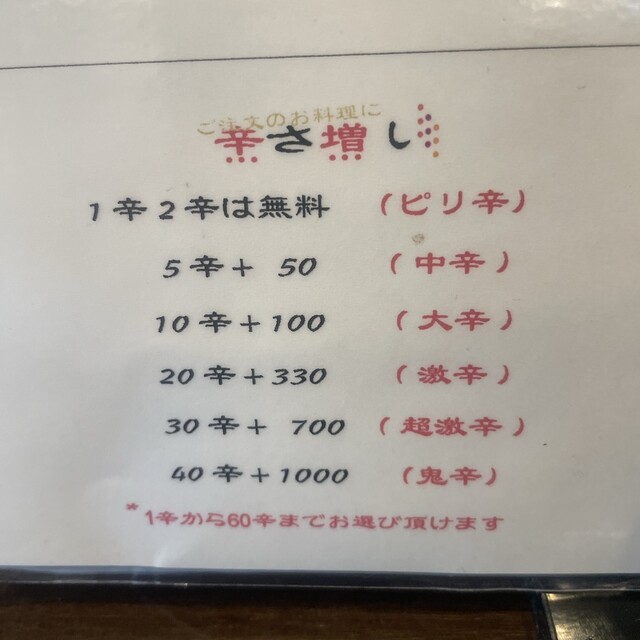 ご注文のお料理に
辛さ増し
1辛2辛は無料 (ピリ辛)
5辛+ 50 (中辛)
10辛+100 (大辛)
20辛+330 (激辛)
30辛+ 700 (超激辛)
40辛+1000 (鬼辛)
*1辛から60辛までお選び頂けます